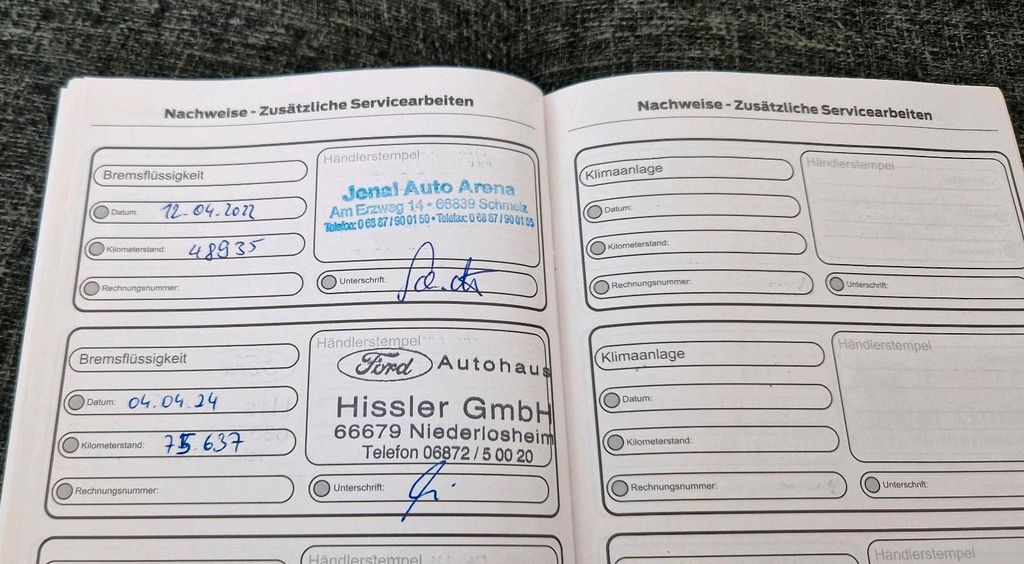 Nachweise - Zusätzliche Servicearbeiten
Bremsflüssigkeit
Datum: 12.04.2022
Kilometerstand: 48935
Rechnungsnummer:
Händlerstempel
Jonal Auto Arena
Am Erzweg 14 • 66839 Schmelz
Telefon: 0 68 87 / 90 01 50 • Telefax: 0 68 87 / 90 01 55
Unterschrift:
Bremsflüssigkeit
Datum: 04.04.24
Kilometerstand: 75.637
Rechnungsnummer:
Händlerstempel
Ford Autohaus
Hissler GmbH
66679 Niederlosheim
Telefon 06872 / 5 00 20
Unterschrift:
Händlerstempel
Nachweise - Zusätzliche Servicearbeiten
Klimaanlage
Datum:
Kilometerstand:
Rechnungsnummer:
Händlerstempel
Unterschrift:
Klimaanlage
Datum:
Kilometerstand:
Rechnungsnummer:
Händlerstempel
Unterschrift:
Händlerstempel